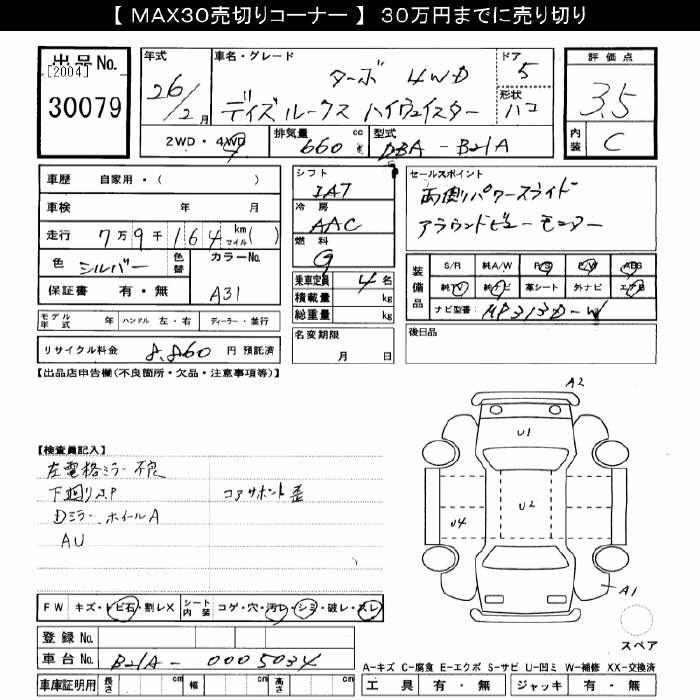 【 MAX30売切りコーナー 】 30万円までに売り切り
出品No.
[2004]
30079
年式
26/2月
車名・グレード
ターボ 4WD
デイズルークス ハイウェイスター
ドア
5
形状
ハコ
評価点
3.5
内装
C
2WD・4WD
排気量
660 cc
型式
DBA-B21A
車歴 自家用・( )
車検 年 月
走行 7万9千164 km マイル( )
色 シルバー 色替
カラーNo.
A31
保証書 有・無
モデル年式 年 ハンドル 左・右 ディーラー・並行
リサイクル料金 8,860 円 預託済
シフト
IAT
冷房
AAC
燃料
G
乗車定員 4名
積載量 kg
総重量 kg
名変期限
月 日
セールスポイント
両側パワースライド
アラウンドビューモニター
装備品
S/R 純A/W P/S P/W ABS
純TV 純ナビ 革シート 外ナビ エアB
ナビ型番: MP313D-W
後日品
【出品店申告欄(不良箇所・欠品・注意事項等)】
【検査員記入】
左電格ミラー不良
下廻りS.P コアサポート歪
Dミラー、ホイールA
AU
A2
U1
U2
U4
A1
スペア
FW キズ・トビ石・割レX シート内装 コゲ・穴・汚レ・シミ・破レ・スレ
登録No.
車台No. B21A-0005034
車庫証明用 長さ cm 幅 cm 高さ cm
A-キズ C-腐食 E-エクボ S-サビ U-凹ミ W-補修 XX-交換済
工具 有・無 ジャッキ 有・無